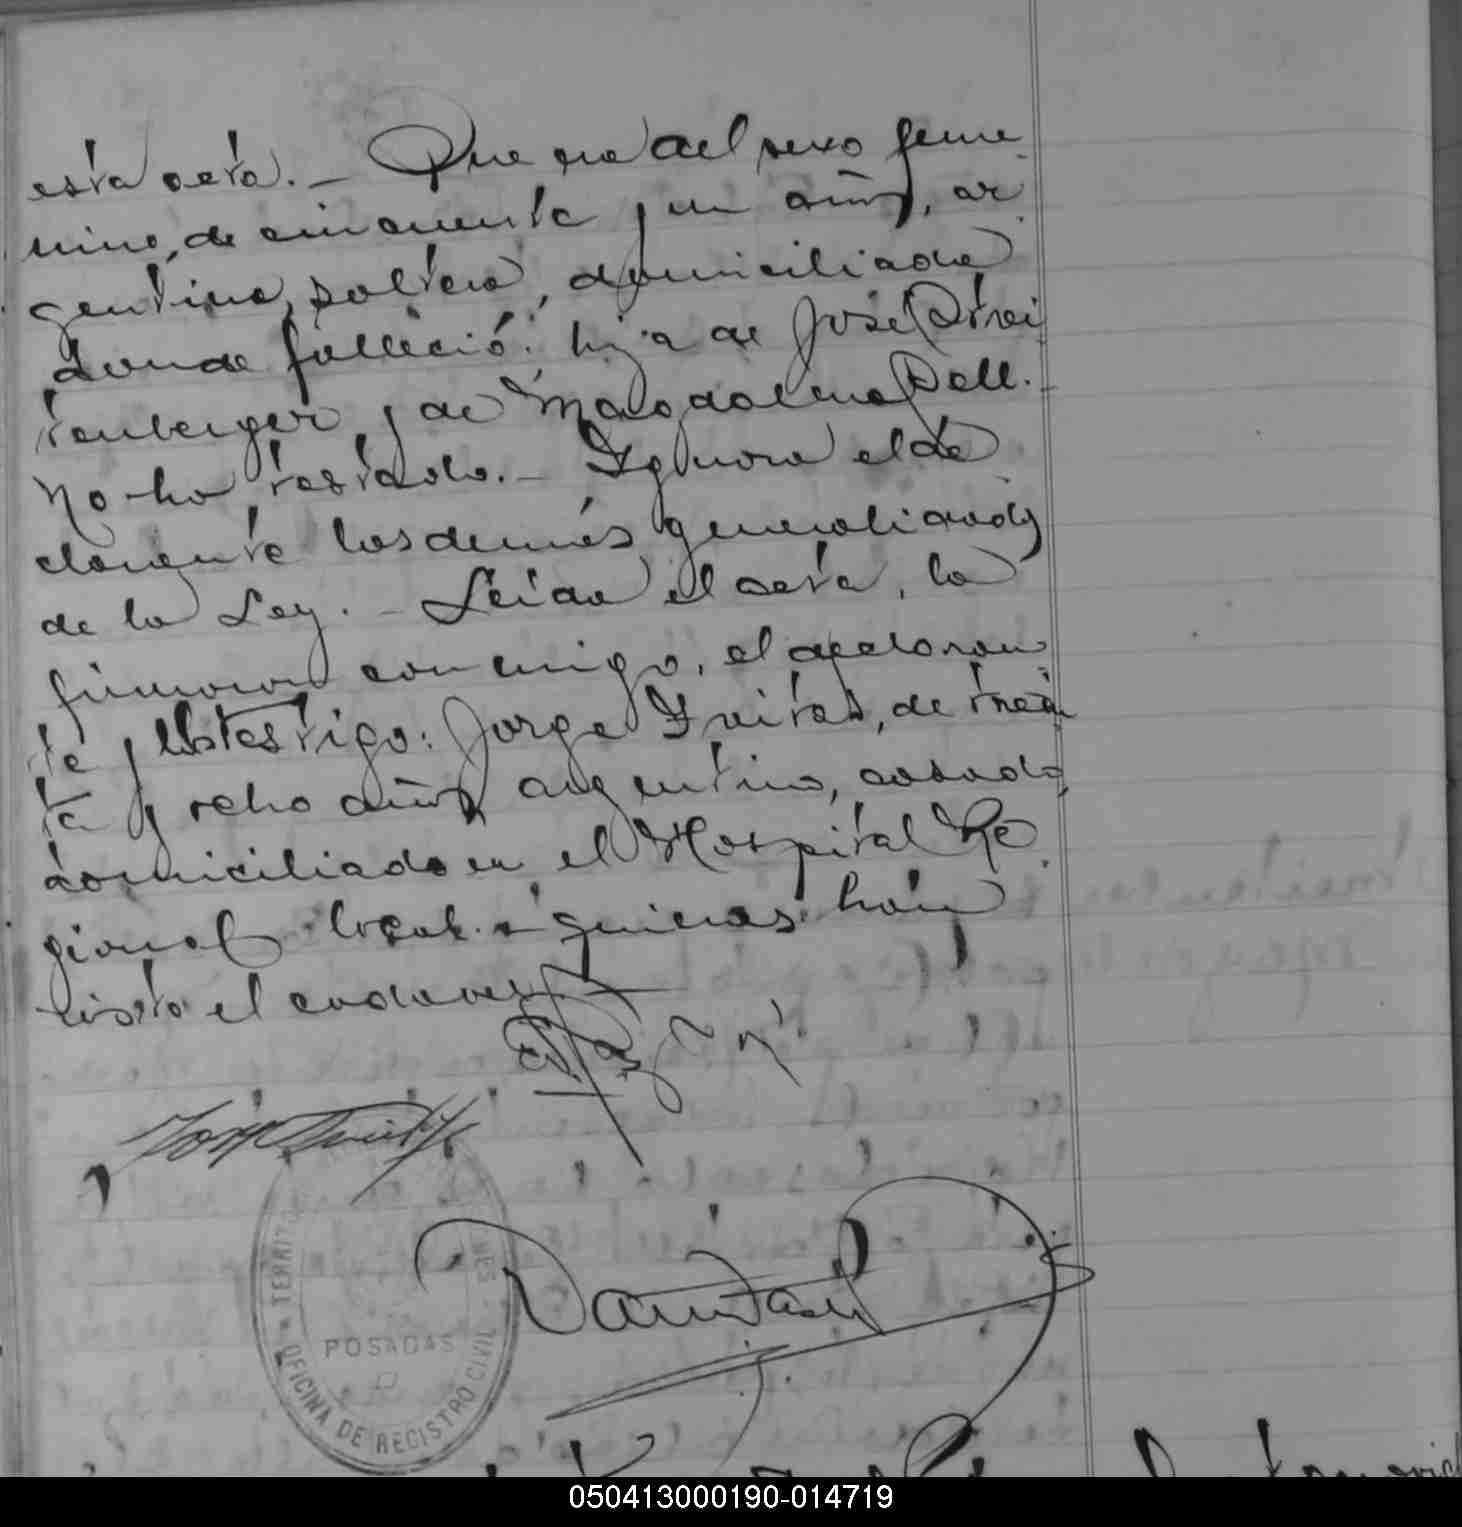 esta acta.- Que era del sexo feme
nino, de cincuenta y un años, ar
gentina, soltera, domiciliada
donde falleció: hija de José Strei
tenberger y de Magdalena Dell.-
No ha testado.- Ignora el de
clarante las demás generalidades
de la Ley.- Leida el acta, la
firmaron conmigo, el declaran
te y el testigo: Jorge Freitas, de trein
ta y ocho años, argentino, casado,
domiciliado en el Hospital Re
gional local. quienes han
visto el cadaver
TERRITORIO
NES
POSADAS
OFICINA DE REGISTRO CIVIL
050413000190-014719